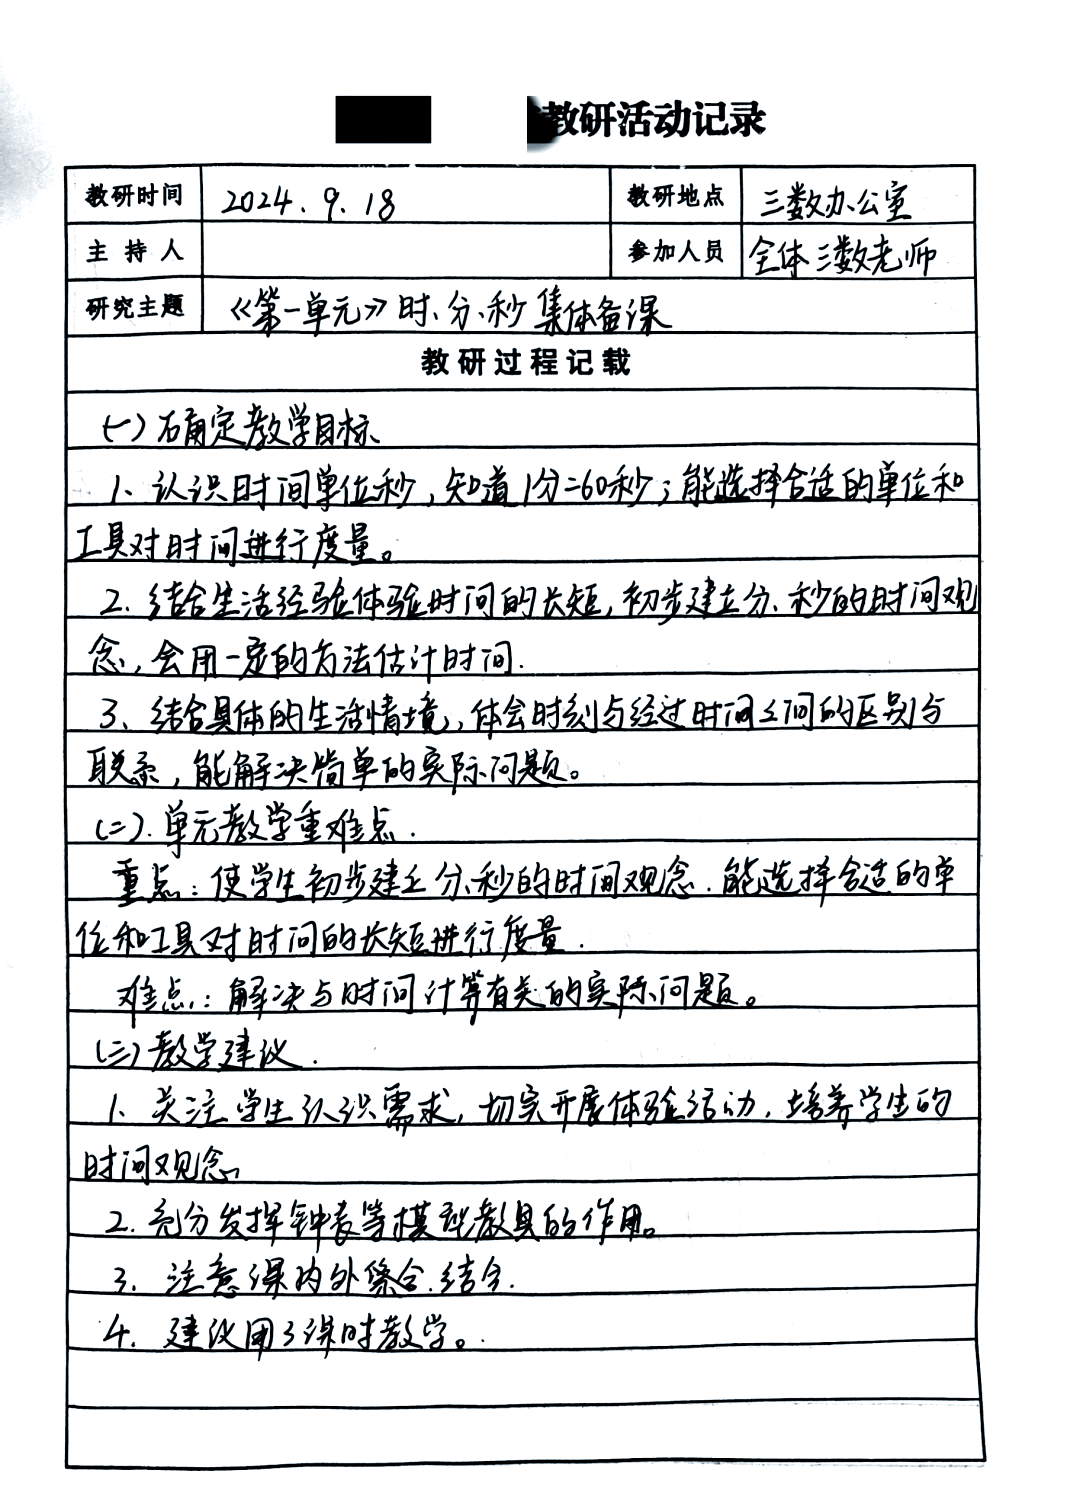 教研活动记录
教研时间 2024.9.18 教研地点 三数办公室
主持人 参加人员 全体三数老师
研究主题 《第一单元》时、分、秒 集体备课
教研过程记载
(一)确定教学目标
1、认识时间单位秒,知道1分=60秒;能选择合适的单位和
工具对时间进行度量。
2. 结合生活经验体验时间的长短,初步建立分、秒的时间观
念,会用一定的方法估计时间.
3、结合具体的生活情境,体会时刻与经过时间之间的区别与
联系,能解决简单的实际问题。
(二).单元教学重难点.
重点:使学生初步建立分、秒的时间观念.能选择合适的单
位和工具对时间的长短进行度量.
难点:解决与时间计算有关的实际问题。
(三)教学建议.
1、关注学生认识需求,切实开展体验活动,培养学生的
时间观念。
2. 充分发挥钟表等模型教具的作用。
3. 注意课内外 结合.
4. 建议用3课时教学。